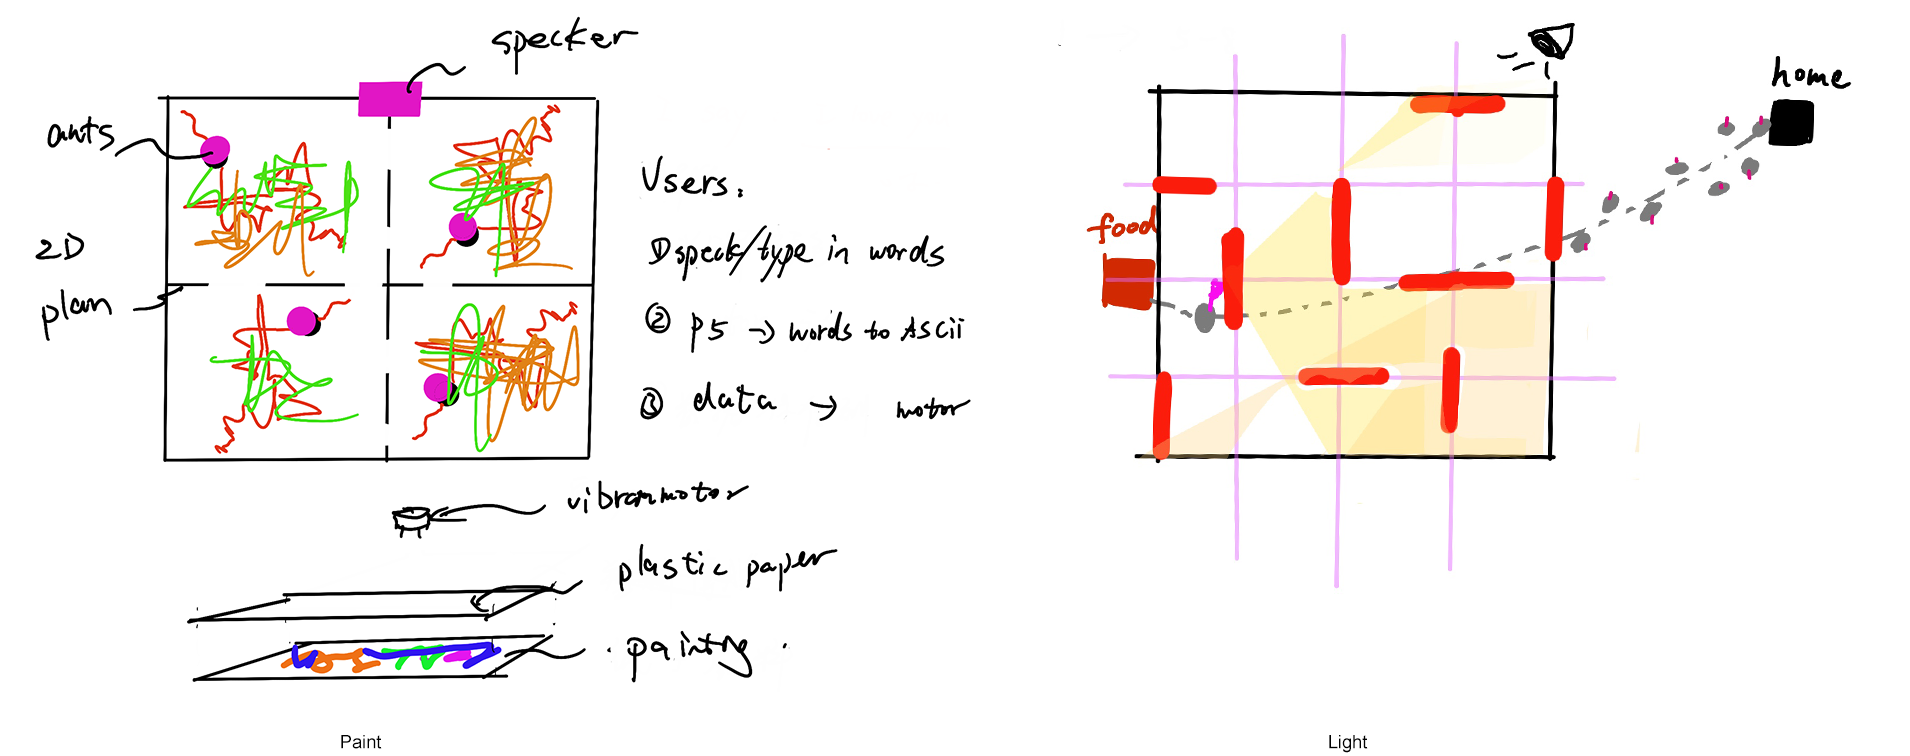 specker
ants
2D
plan
Users:
① speck/type in words
② P5 → words to Ascii
③ data → motor
vibranmotor
plastic paper
painting
Paint
home
food
Light